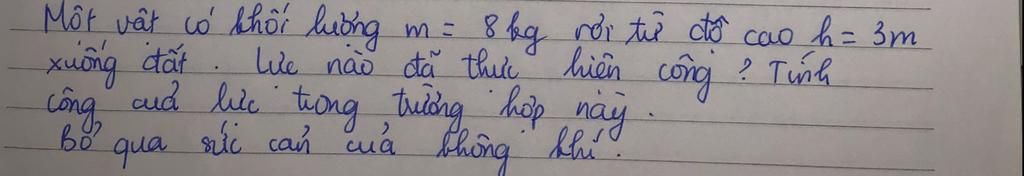 Một vật có khối lượng m = 8 kg rơi từ độ cao h = 3m
xuống đất. Lực nào đã thực hiện công? Tính
công của lực trong trường hợp này.
Bỏ qua sức cản của không khí.